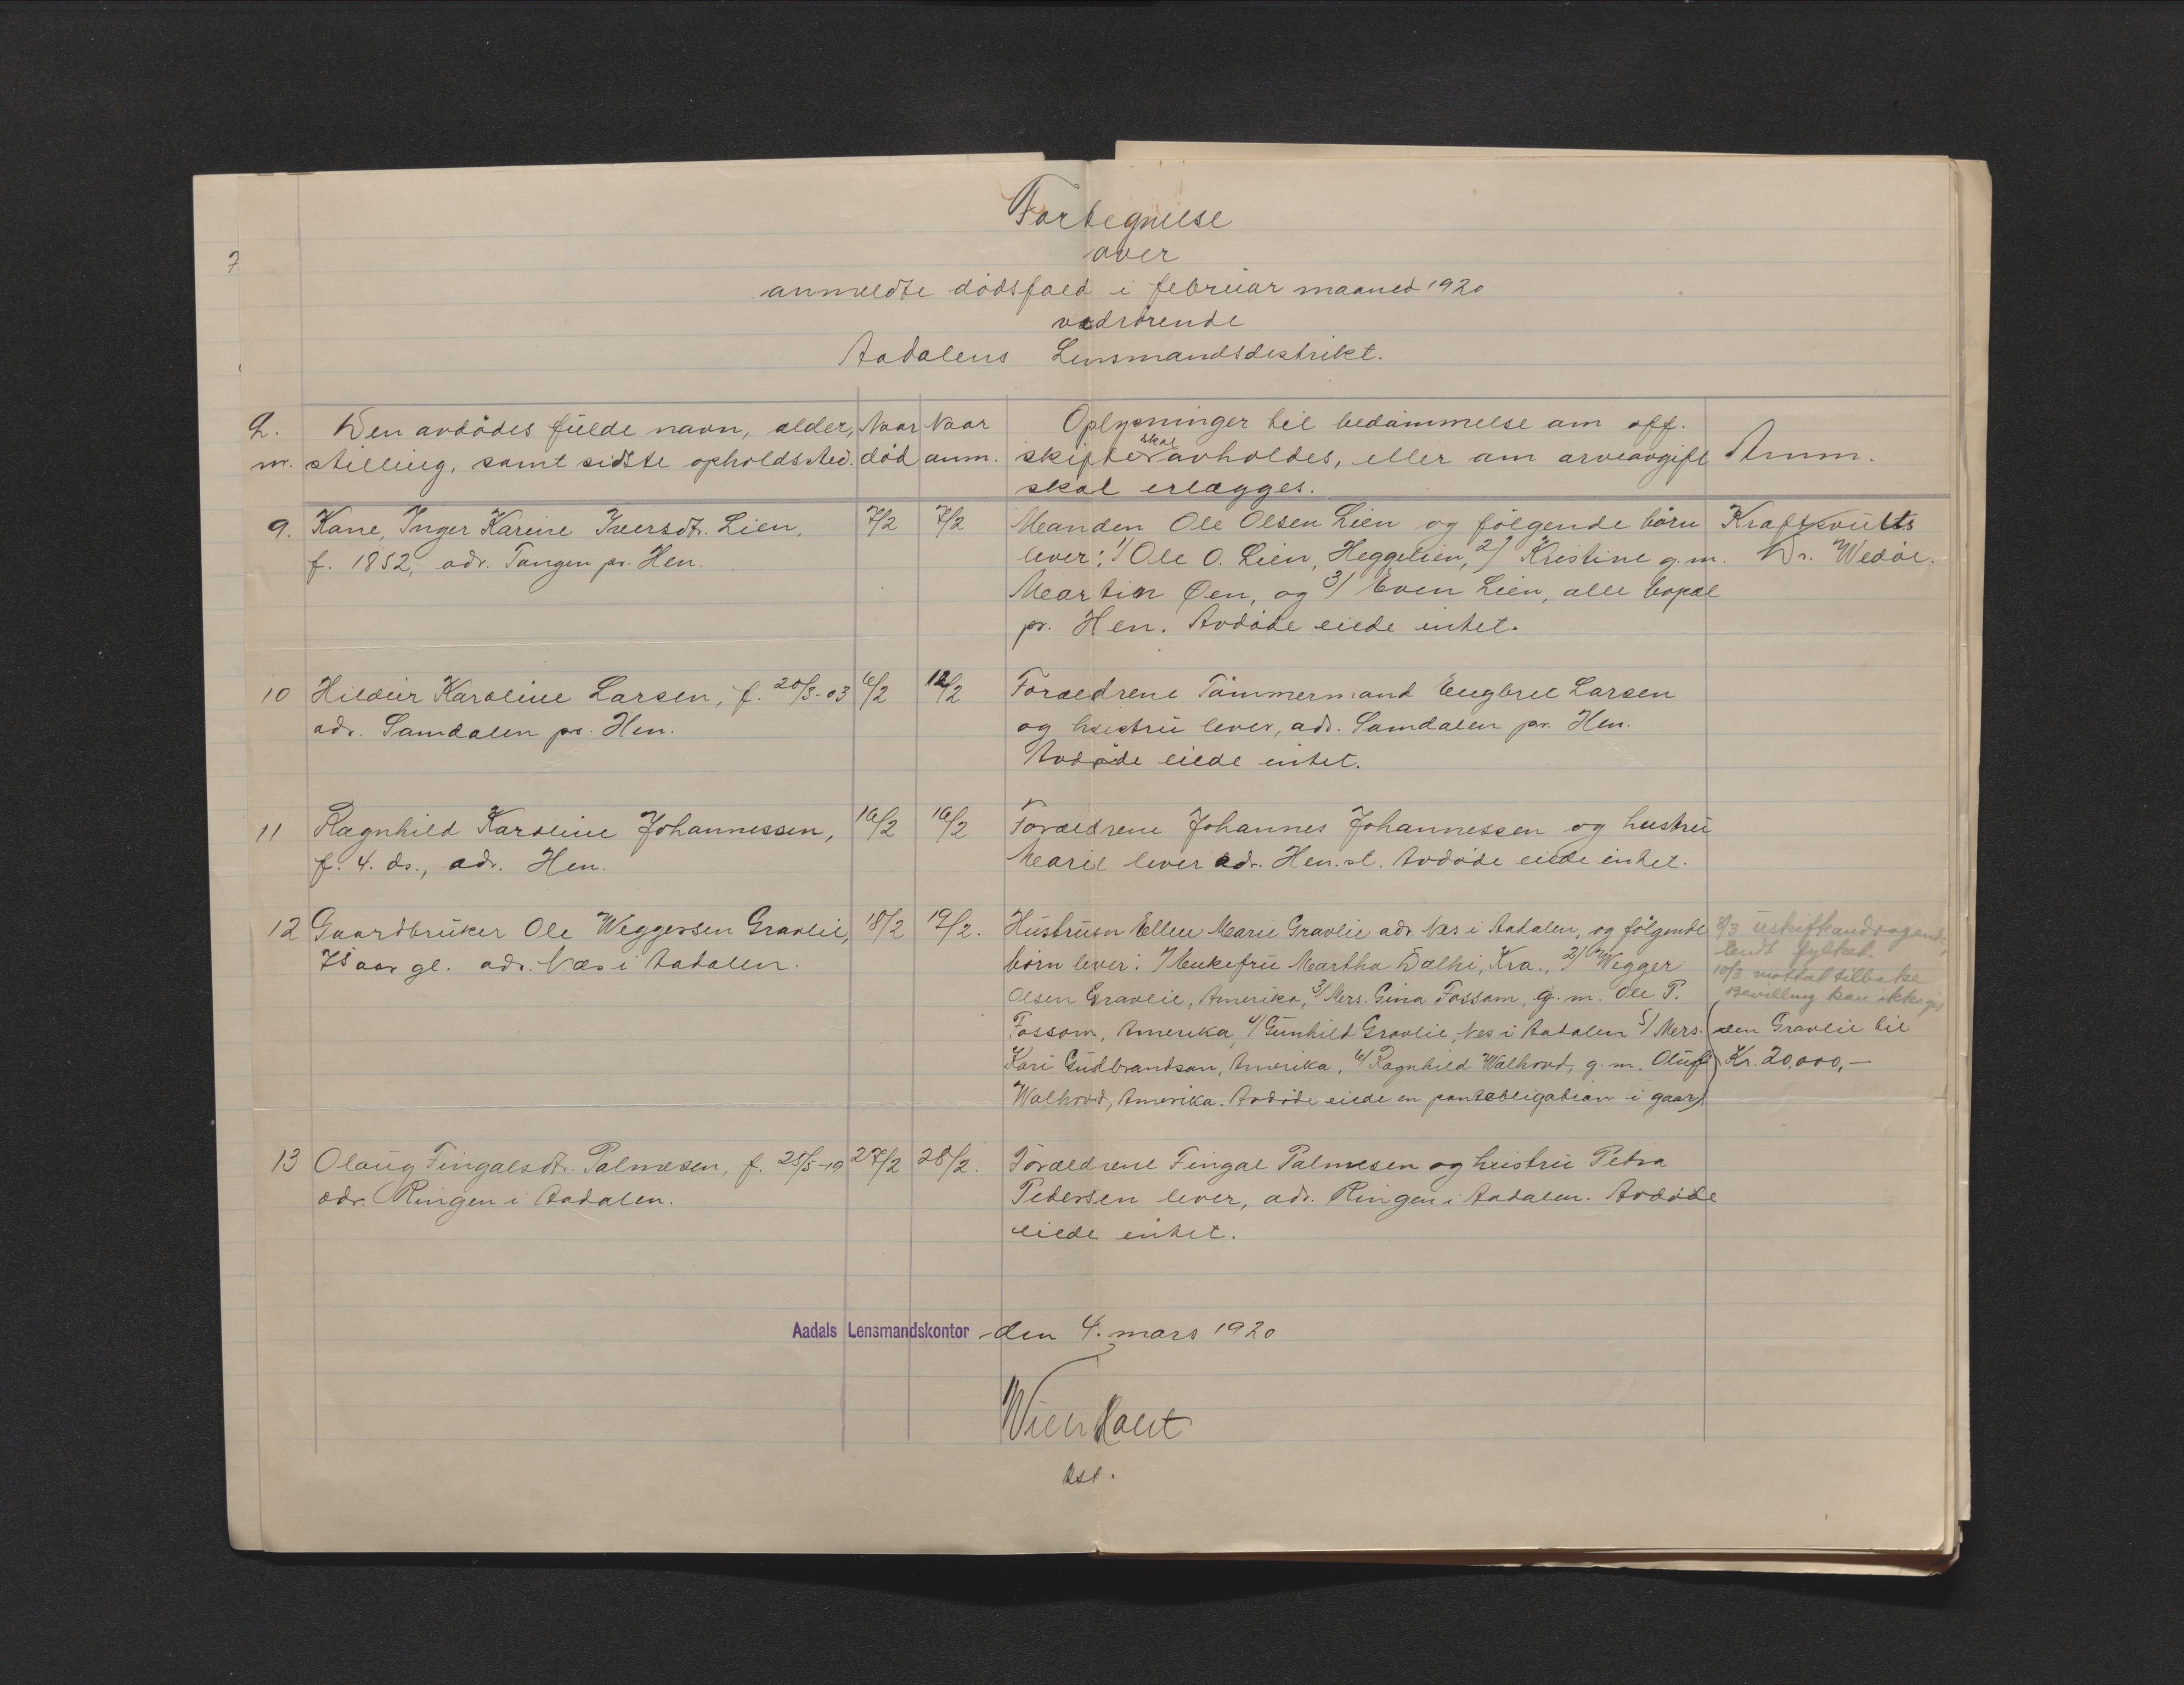 Fortegnelse
over
anmeldte dödsfald i februar maaned 1920
vedrörende
Aadalens Lensmandsdistrikt.
L. nr.
Den avdödes fulde navn, alder,
stilling, samt sidste opholdsted.
Naar död
Naar anm.
Oplysninger til bedömmelse om off.
skifte skal avholdes, eller om arveavgift
skal erlægges.
Anm.
9. Kone, Inger Karine Iversdt. Lien,
f. 1852, adr. Tangen pr. Hen.
7/2 7/2
Manden Ole Olsen Lien og fölgende börn
lever: 1/ Ole O. Lien, Heggelien, 2/ Kristine g. m.
Martin Öen, og 3/ Even Lien, alle bopæl
pr. Hen. Avdöde eiede intet.
Kraftsvulst
Dr. Wedöe.
10 Hildur Karoline Larsen, f. 20/3-03
adr. Samdalen pr. Hen.
6/2 12/2
Forældrene Tömmermand Engbret Larsen
og hustru lever, adr. Samdalen pr. Hen.
Avdöde eiede intet.
11 Ragnhild Karoline Johannessen,
f. 4. ds., adr. Hen.
16/2 16/2
Forældrene Johannes Johannessen og hustru
Marie lever adr. Hen. st. Avdöde eiede intet.
12 Gaardbruker Ole Weggersen Gravlie,
78 aar gl. adr. Næs i Aadalen.
18/2 19/2.
Hustruen Ellen Marie Gravlie adr. Næs i Aadalen, og fölgende
börn lever: 1/ Enkefru Martha Dælhi, Kra., 2/ Wegger
Olsen Gravlie, Amerika, 3/ Mrs. Gina Fossom, g. m. Ole P.
Fossom, Amerika, 4/ Gunhild Gravlie, Næs i Aadalen 5/ Mers.
Kari Gudbrandson, Amerika, 6/ Ragnhild Walhovd, g. m. Oluf
Walhovd, Amerika. Avdöde eiede en pantobligation i gaar
8/3 uskifteandragende
sendt fylket.
10/3 mottat tilbake
Bevilling kan ikke gis
den Gravlie til
Kr. 20,000,-
13 Olaug Fingalsdt. Palmesen, f. 25/5-19
adr. Ringen i Aadalen.
27/2 28/2.
Forældrene Fingal Palmesen og hustru Petra
Pedersen lever, adr. Ringen i Aadalen. Avdöde
eiede intet.
Aadals Lensmandskontor den 4. mars 1920